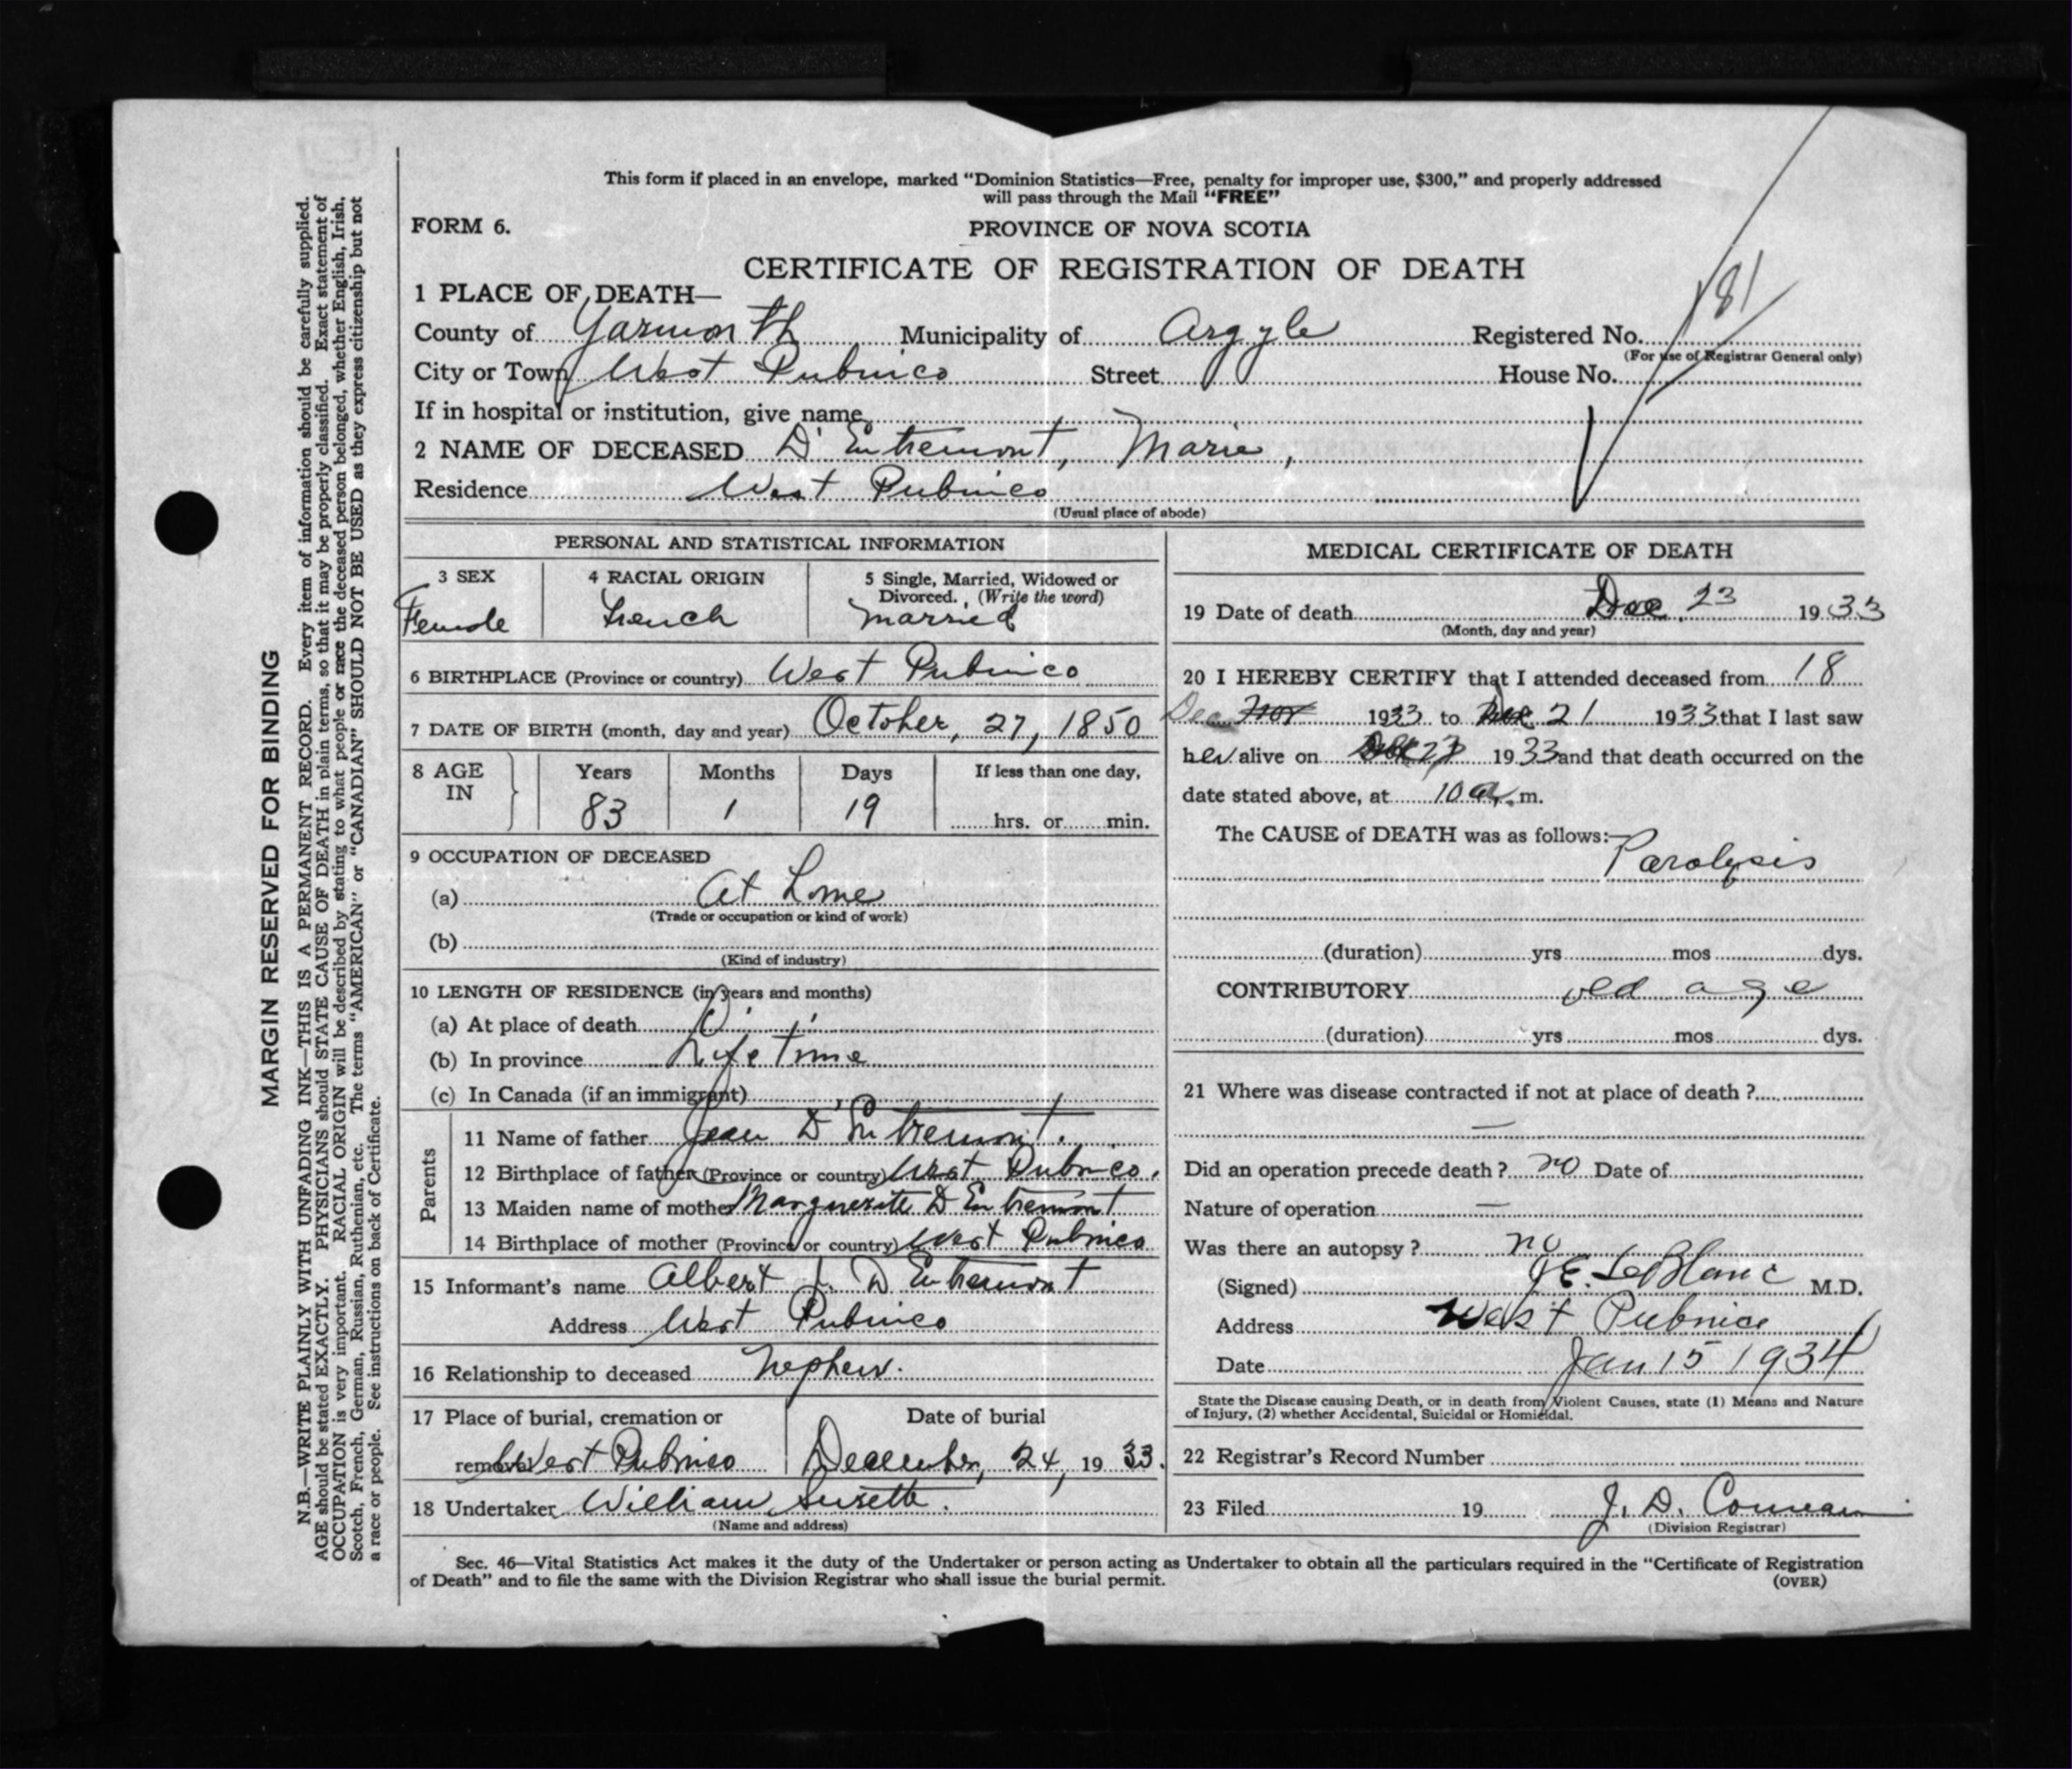 This form if placed in an envelope, marked “Dominion Statistics—Free, penalty for improper use, $300,” and properly addressed
will pass through the Mail “FREE”
FORM 6.
PROVINCE OF NOVA SCOTIA
CERTIFICATE OF REGISTRATION OF DEATH
181
1 PLACE OF DEATH—
County of Yarmouth Municipality of Argyle Registered No.
(For use of Registrar General only)
City or Town West Pubnico Street House No.
If in hospital or institution, give name
2 NAME OF DECEASED D'Entremont, Marie,
Residence West Pubnico
(Usual place of abode)
PERSONAL AND STATISTICAL INFORMATION
3 SEX 4 RACIAL ORIGIN 5 Single, Married, Widowed or
Divorced. (Write the word)
Female French Married
6 BIRTHPLACE (Province or country) West Pubnico
7 DATE OF BIRTH (month, day and year) October, 27, 1850
8 AGE IN Years Months Days If less than one day,
83 1 19 hrs. or min.
9 OCCUPATION OF DECEASED
(a) At Home
(Trade or occupation or kind of work)
(b)
(Kind of industry)
10 LENGTH OF RESIDENCE (in years and months)
(a) At place of death
(b) In province Life time
(c) In Canada (if an immigrant)
Parents
11 Name of father Jean D'Entremont.
12 Birthplace of father (Province or country) West Pubnico.
13 Maiden name of mother Marguerite D Entremont
14 Birthplace of mother (Province or country) West Pubnico
15 Informant's name Albert J. D Entremont
Address West Pubnico
16 Relationship to deceased Nephew.
17 Place of burial, cremation or Date of burial
removal West Pubnico December, 24, 1933.
18 Undertaker William Surette.
(Name and address)
MEDICAL CERTIFICATE OF DEATH
19 Date of death Dec. 23 1933
(Month, day and year)
20 I HEREBY CERTIFY that I attended deceased from 18
Dec Nov 1933 to Dec 21 1933 that I last saw
her alive on 1933 and that death occurred on the
date stated above, at 10 a. m.
The CAUSE of DEATH was as follows:—
Paralysis
(duration) yrs mos dys.
CONTRIBUTORY old age
(duration) yrs mos dys.
21 Where was disease contracted if not at place of death ?
—
Did an operation precede death ? no Date of
Nature of operation —
Was there an autopsy ? no
(Signed) J E. LeBlanc M.D.
Address West Pubnico
Date Jan 15 1934
State the Disease causing Death, or in death from Violent Causes, state (1) Means and Nature
of Injury, (2) whether Accidental, Suicidal or Homicidal.
22 Registrar's Record Number
23 Filed 19 J. D. Comeau
(Division Registrar)
Sec. 46—Vital Statistics Act makes it the duty of the Undertaker or person acting as Undertaker to obtain all the particulars required in the “Certificate of Registration
of Death” and to file the same with the Division Registrar who shall issue the burial permit.
(OVER)
MARGIN RESERVED FOR BINDING
N.B.—WRITE PLAINLY WITH UNFADING INK—THIS IS A PERMANENT RECORD. Every item of information should be carefully supplied.
AGE should be stated EXACTLY. PHYSICIANS should STATE CAUSE OF DEATH in plain terms, so that it may be properly classified. Exact statement of
OCCUPATION is very important. RACIAL ORIGIN will be described by stating to what people or race the deceased person belonged, whether English, Irish,
Scotch, French, German, Russian, Ruthenian, etc. The terms “AMERICAN” or “CANADIAN” SHOULD NOT BE USED as they express citizenship but not
a race or people. See instructions on back of Certificate.